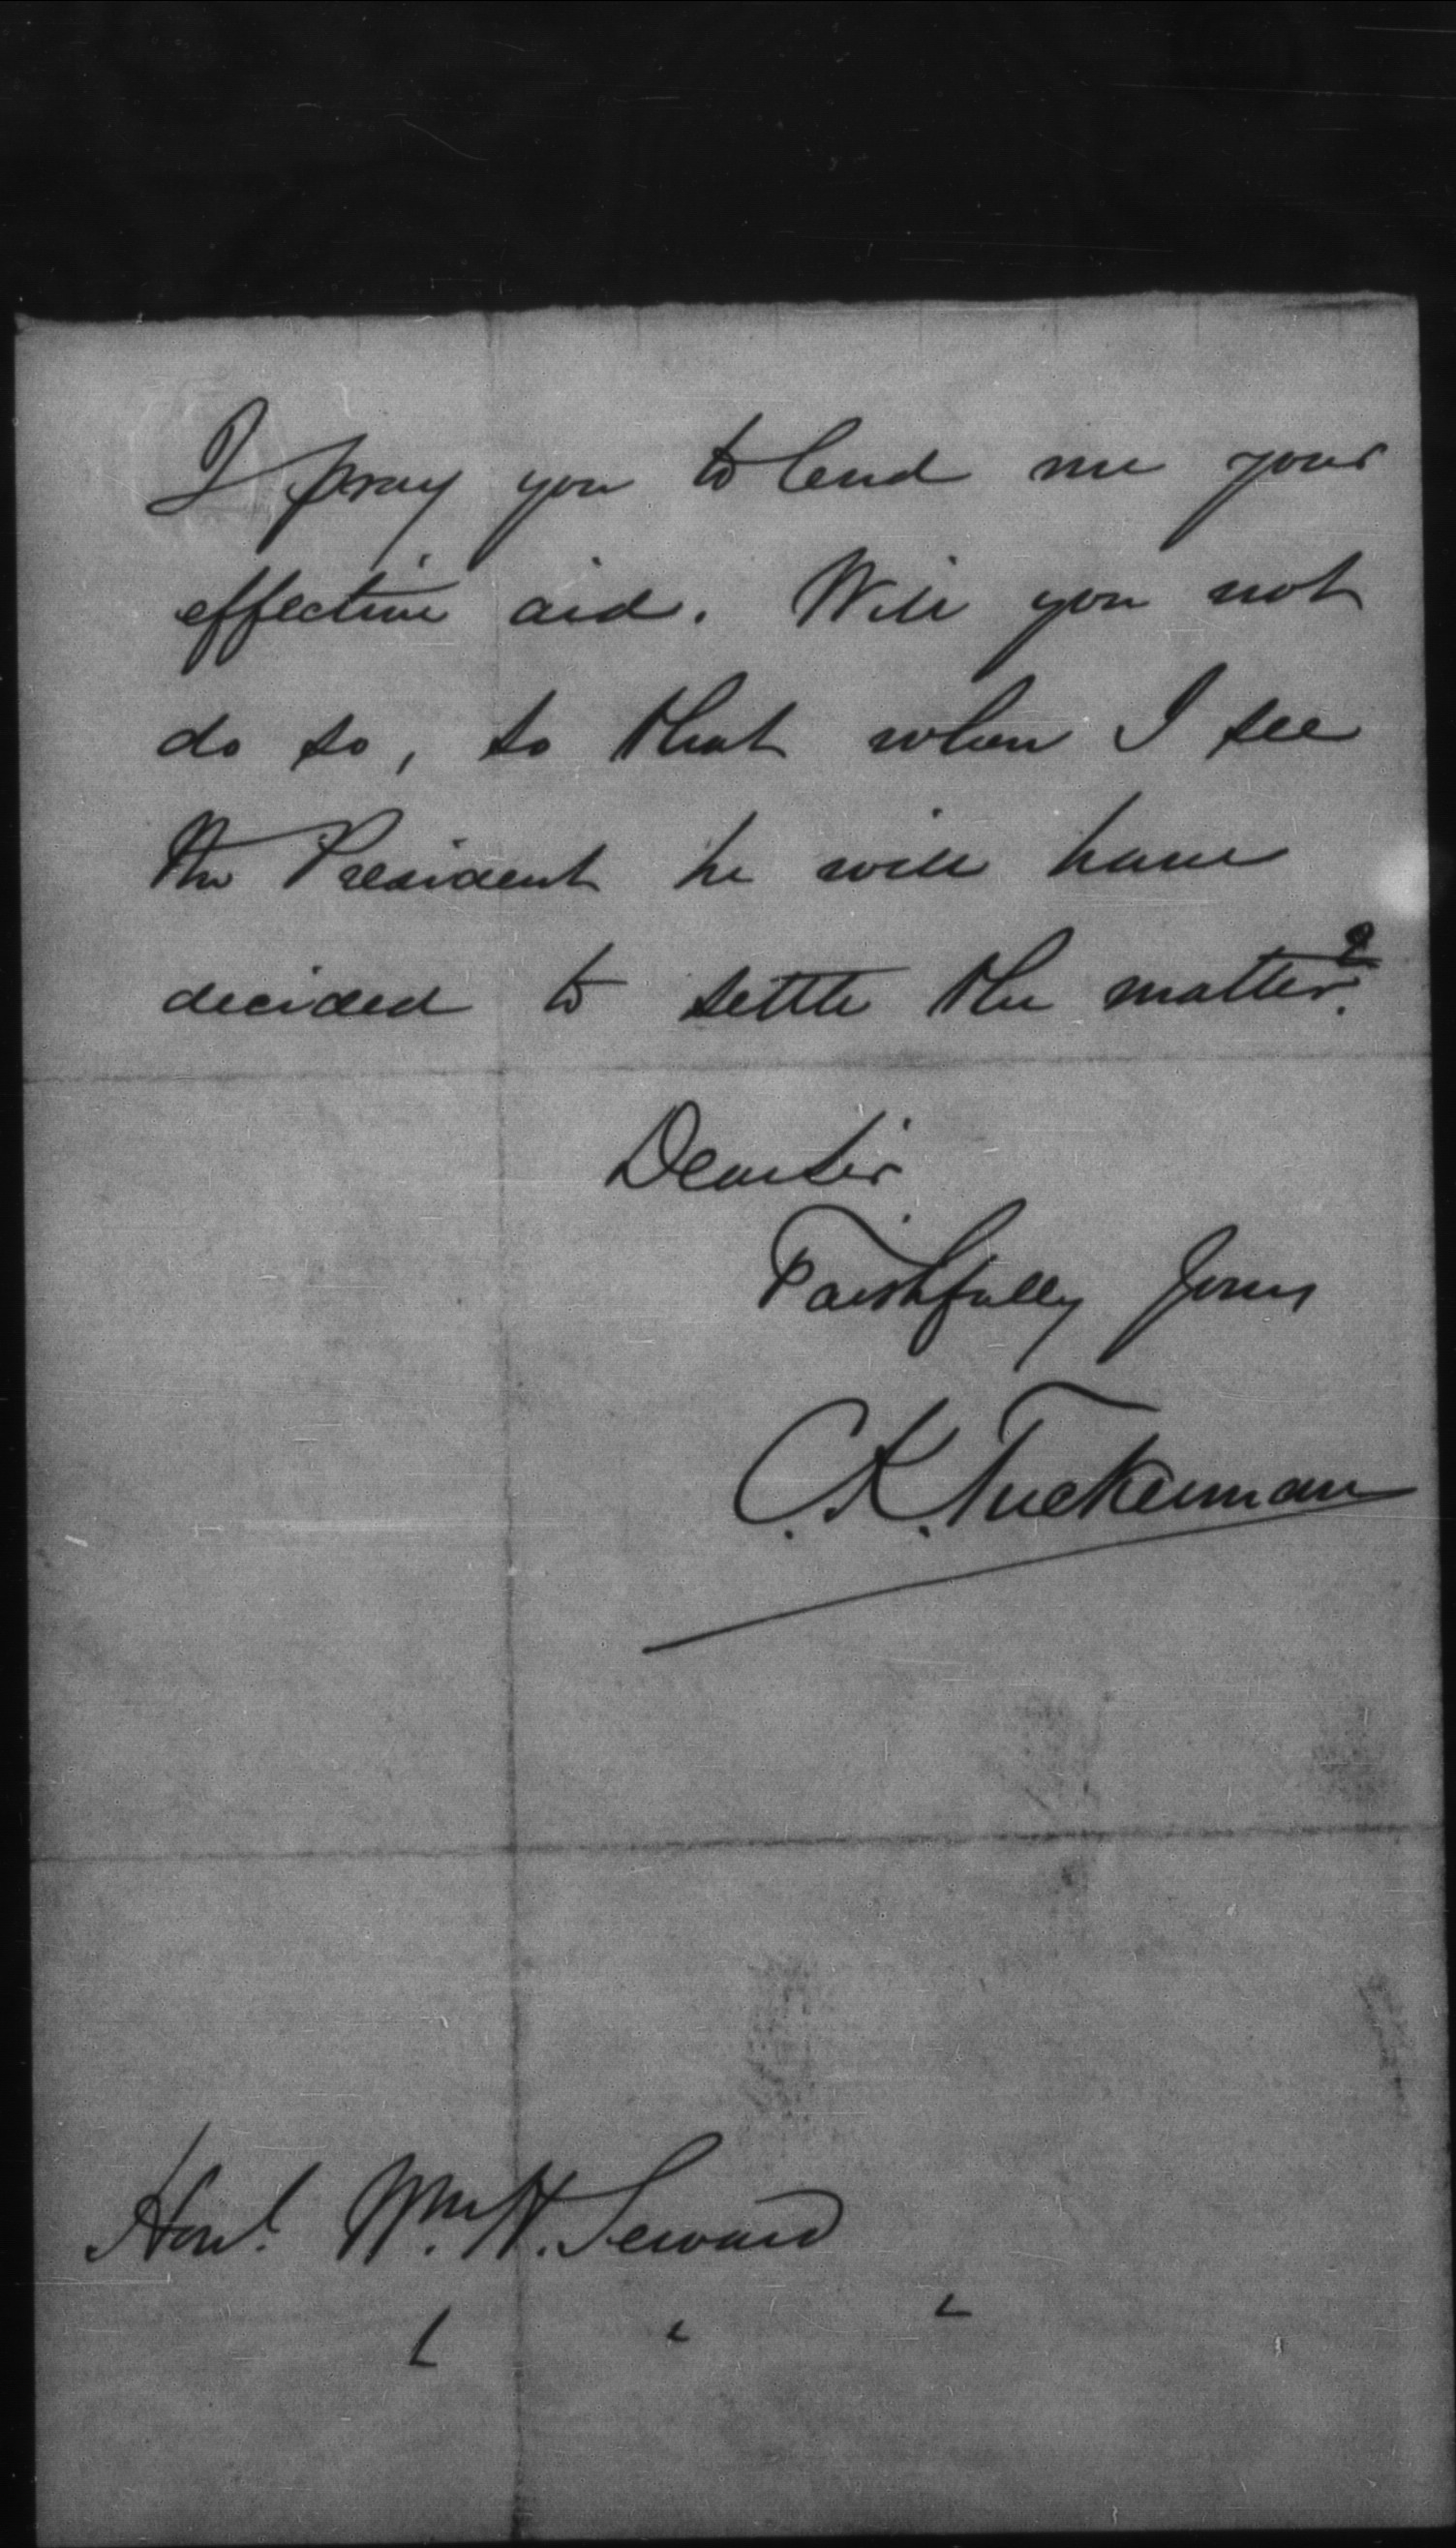 I pray you to lend me your
effective aid. Will you not
do so, so that when I see
the President he will have
decided to settle the matter?
Dear Sir
Faithfully Yours
C. K. Tuckerman
Honl. Wm. H. Seward